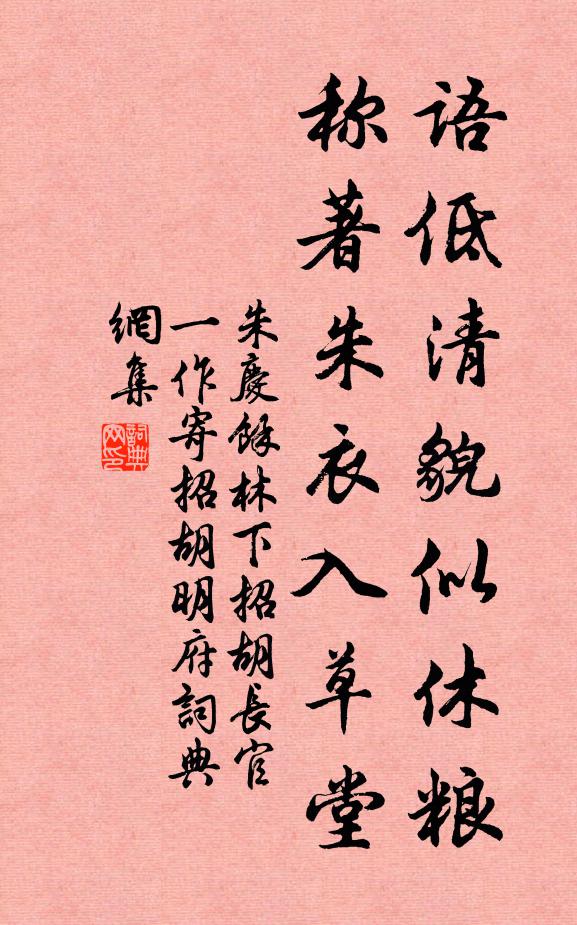 語低清貌似休粮
称著朱衣入草堂
朱慶餘林下招胡長官
一作寄招胡明府詞典
網集
詞典
网印